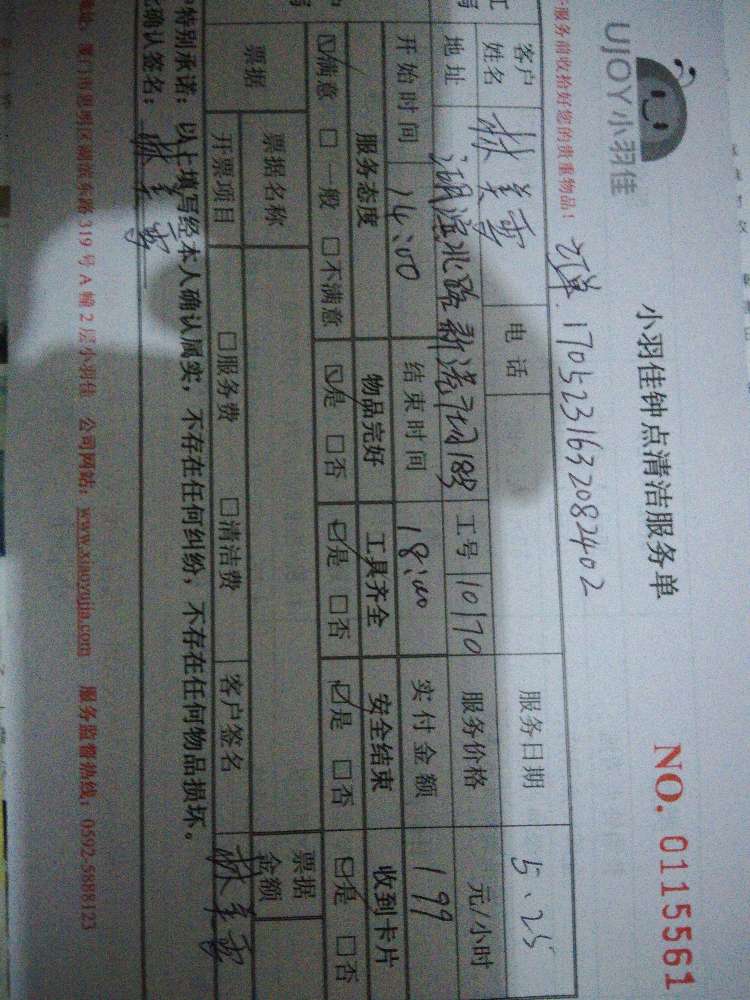 UJOY小羽佳
小羽佳钟点清洁服务单
NO. 0115561
服务前收拾好您的贵重物品!
订单. 1705231632082402
客户姓名 林美 电话 服务日期 5.25
地址 湖滨北路新港广场 工号 10170 服务价格 元/小时
开始时间 14:00 结束时间 18:00 实付金额 199
服务态度 物品完好 工具齐全 安全结束 收到卡片
☑满意 □一般 □不满意 ☑是 □否 ☑是 □否 ☑是 □否 ☑是 □否
票据 票据名称 票据金额
开票项目 □服务费 □清洁费 客户签名 林美
特别承诺:以上填写经本人确认属实,不存在任何纠纷,不存在任何物品损坏。
确认签名: 林美
地址:厦门市思明区湖滨东路319号A幢2层小羽佳 公司网站:www.xiaoyujia.com 服务监督热线:0592-5888123